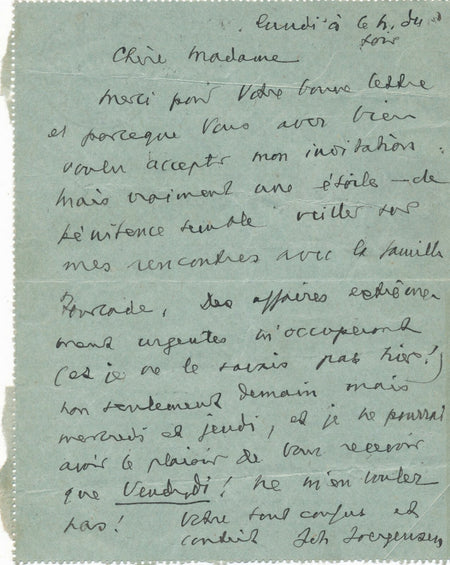 lundi à 6 h. du
soir
Chère Madame
Merci pour Votre bonne lettre
et parceque Vous avez bien
voulu accepter mon invitation :
mais vraiment une étoile de
pénitence semble veiller sur
mes rencontres avec la famille
Fourcade. Des affaires extrême-
ment urgentes m'occuperont
(et je ne le savais pas hier!)
non seulement demain mais
mercredi et jeudi, et je ne pourrai
avoir le plaisir de Vous recevoir
que Vendredi! Ne m'en voulez
pas! Votre tout confus et
contrit Joh Joergensen